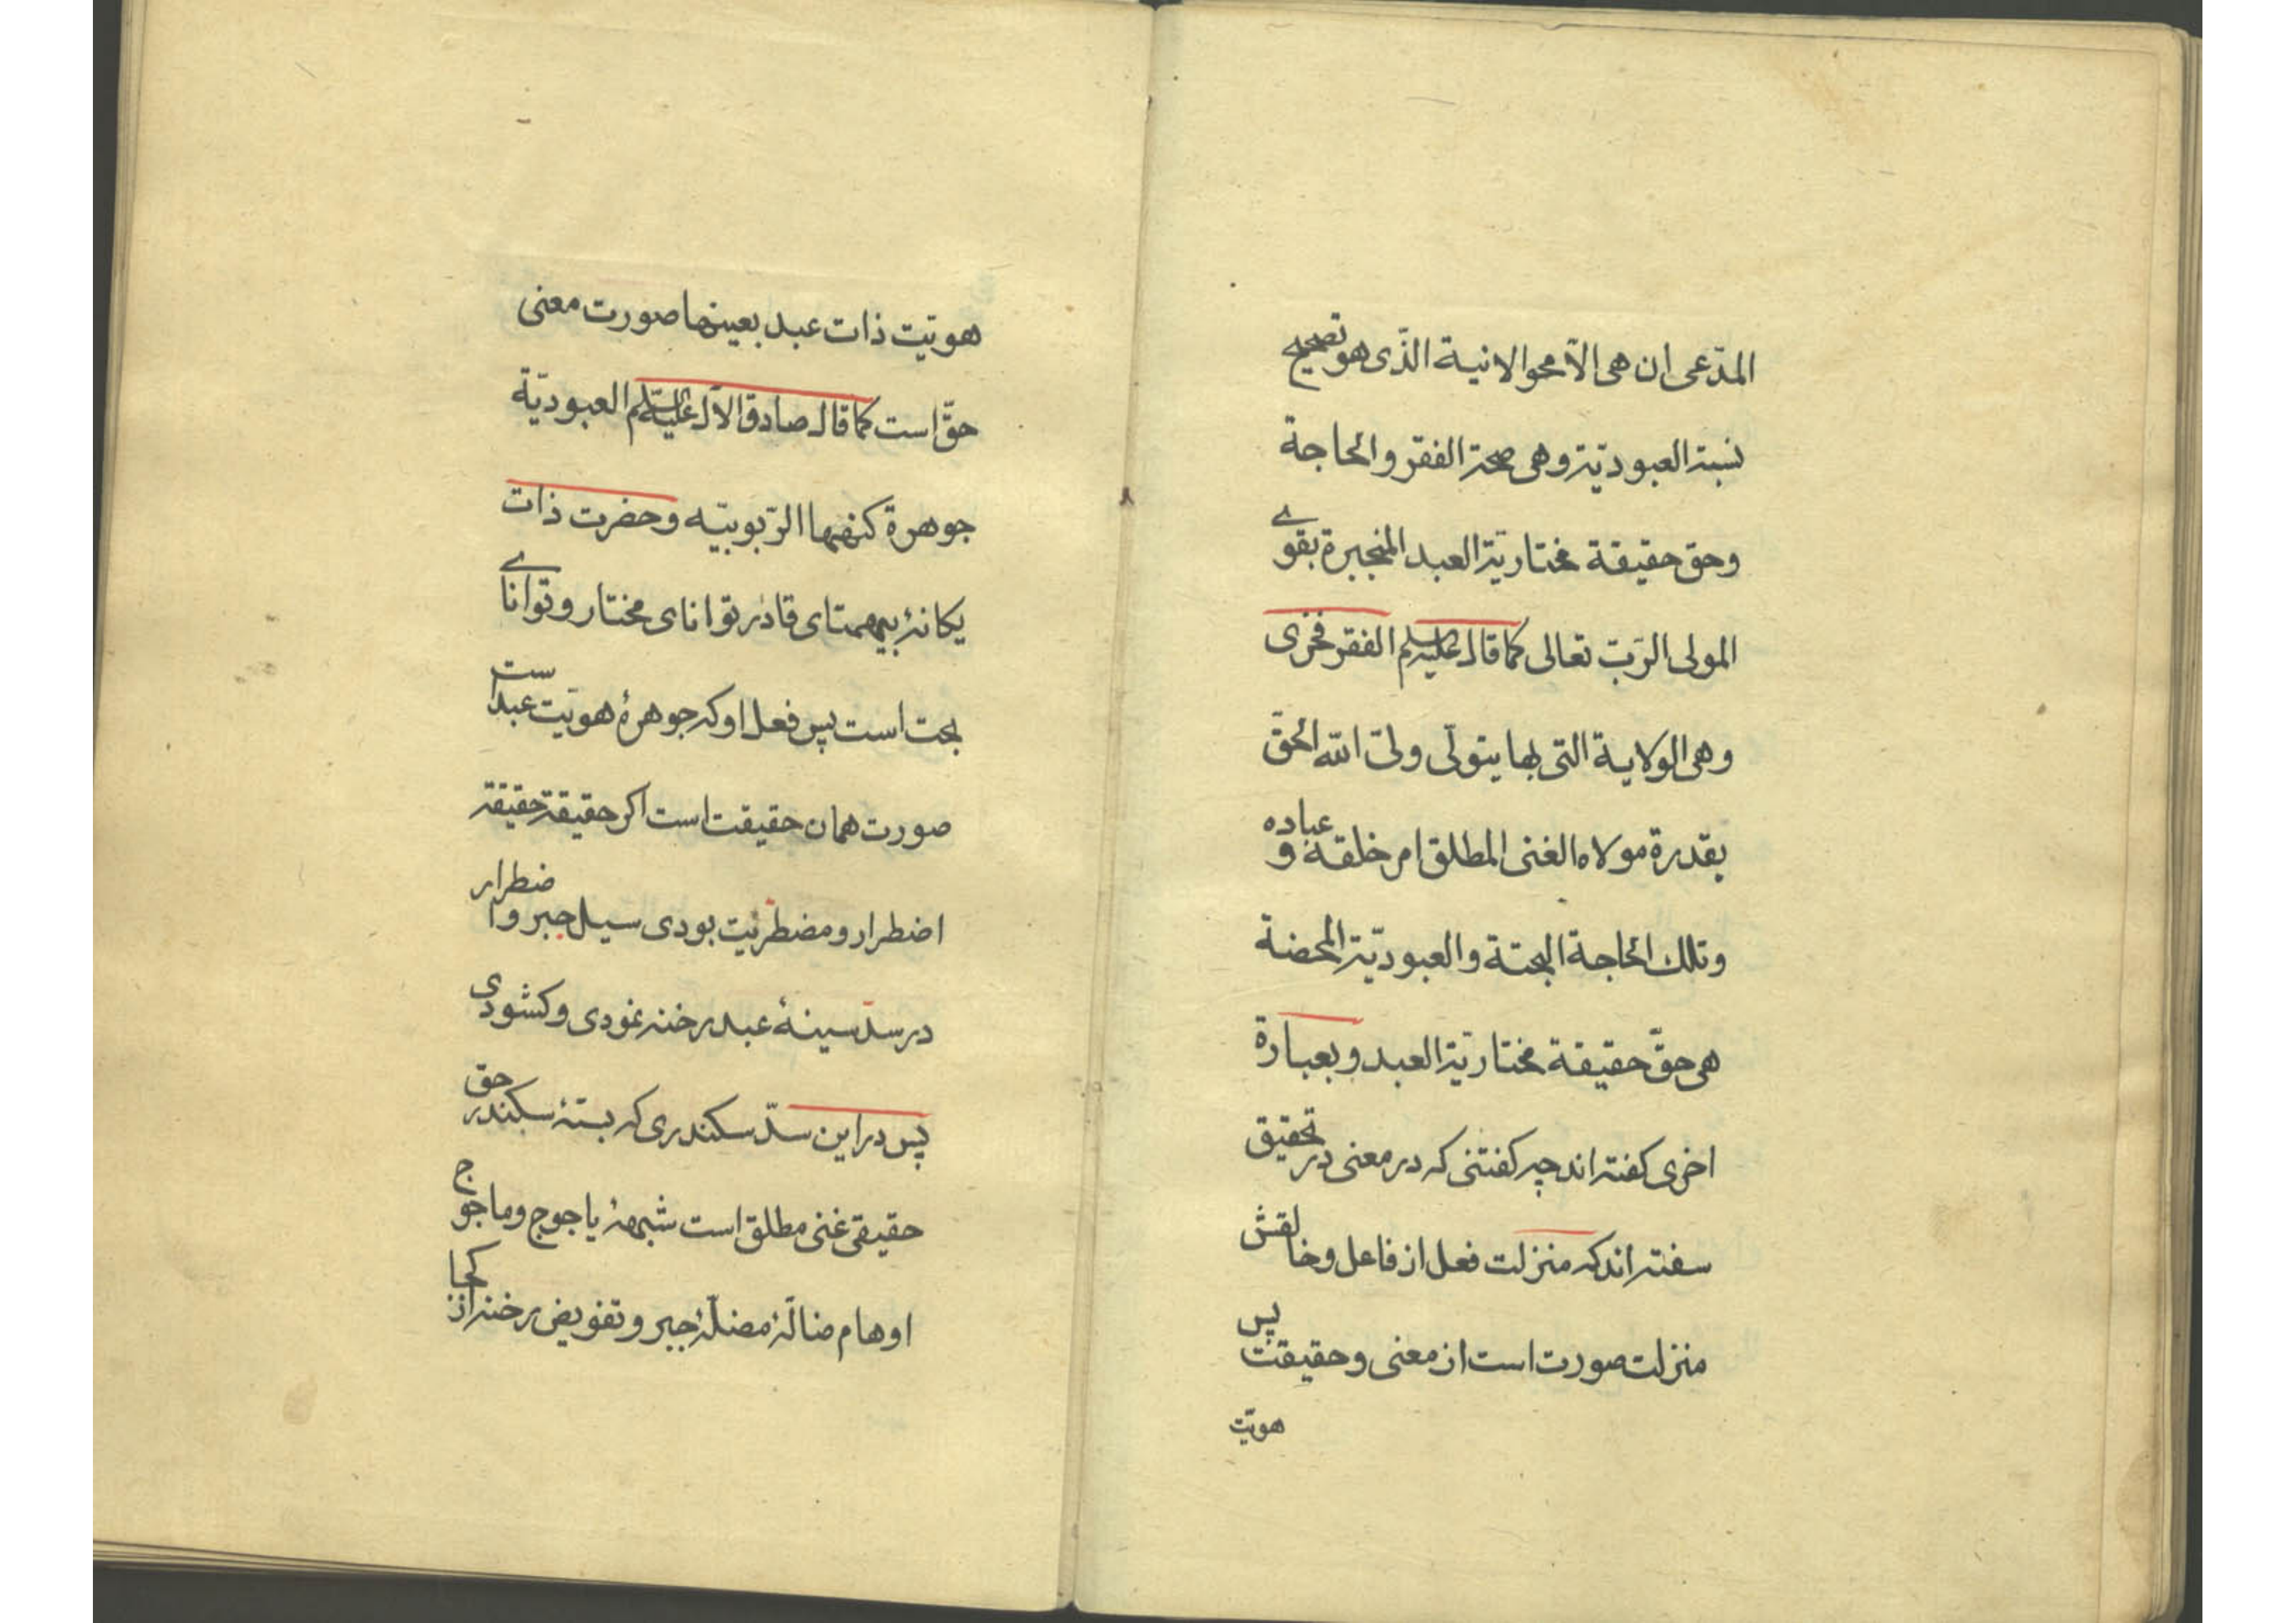 المدّعی ان هی الّا محو الانیة الذّی هو تصحیح
نسبة العبودیّة وهی صحة الفقر والحاجة
وحق حقیقة مختاریّة العبد المنجبرة بقوی
المولی الرّبّ تعالی کما قال علیه السلم الفقر فخری
وهی الولایة التی بها یتولّی ولیّ الله الحقّ
بقدرة مولاه الغنی المطلق امر خلقه و عباده
وتلک الحاجة البحتة والعبودیّة المحضة
هی حقّ حقیقة مختاریّة العبد وبعبارة
اخری کفته اند چه کفتنی که در معنی در تحقیق
سفته اند که منزلت فعل از فاعل وخالقش
منزلت صورت است از معنی وحقیقت پس
هویّت
هویّت ذات عبد بعینها صورت معنی
حقّ است کما قال صادق الآل علیه السلم العبودیّة
جوهرة کنهها الرّبوبیّه وحضرت ذات
یکانهٔ بیهمتای قادر توانای مختار وتوانای
بحت است پس فعل او که جوهرهٔ هویّت عبد است
صورت همان حقیقت است اکر حقیقة حقیقة
اضطرار ومضطریّت بودی سیل جبر واضطرار
در سدّ سینهٔ عبد رخنه نمودی وکشودی
پس در این سدّ سکندری که بستهٔ سکندر حق
حقیقی غنی مطلق است شبههٔ یاجوج وماجوج
اوهام ضالّهٔ مضلّهٔ جبر وتفویض رخنه از کجا